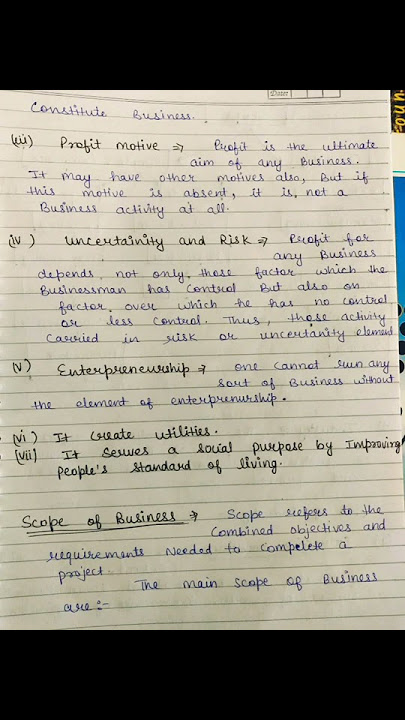 Date:
Constitute Business.
(iii) Profit motive ⇒ Profit is the ultimate
aim of any Business.
It may have other motives also, But if
this motive is absent, it is not a
Business activity at all.
(iv) Uncertainity and Risk ⇒ Profit for
any Business
depends not only those factor which the
Businessman has control But also on
factor over which he has no control
or less control. Thus, those activity
carried in risk or uncertanity element
(v) Enterpreneurship → one cannot run any
sort of Business without
the element of enterprenurship.
(vi) It create utilities.
(vii) It serves a social purpose by Improving
People's standard of living.
Scope of Business → Scope refers to the
combined objectives and
requirements needed to complete a
project.
The main scope of Business
are:-